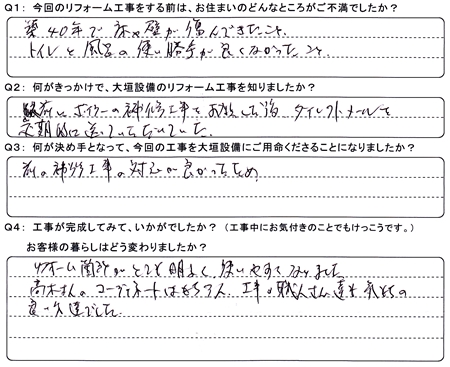 Q1: 今回のリフォーム工事をする前は、お住まいのどんなところがご不満でしたか?
築40年で床や壁が傷んできたこと。
トイレと風呂の使い勝手が良くなかったこと
Q2: 何がきっかけで、大垣設備のリフォーム工事を知りましたか?
以前にボイラーの補修工事をお願いした後 ダイレクトメールを
定期的に送っていただいていた。
Q3: 何が決め手となって、今回の工事を大垣設備にご用命くださることになりましたか?
前の補修工事の対応が良かったため
Q4: 工事が完成してみて、いかがでしたか? (工事中にお気付きのことでもけっこうです。)
お客様の暮らしはどう変わりましたか?
リフォーム箇所がとても明るく使いやすくなりました
高木さんのコーディネートはもちろん、工事の職人さん達も気持の
良い人達でした